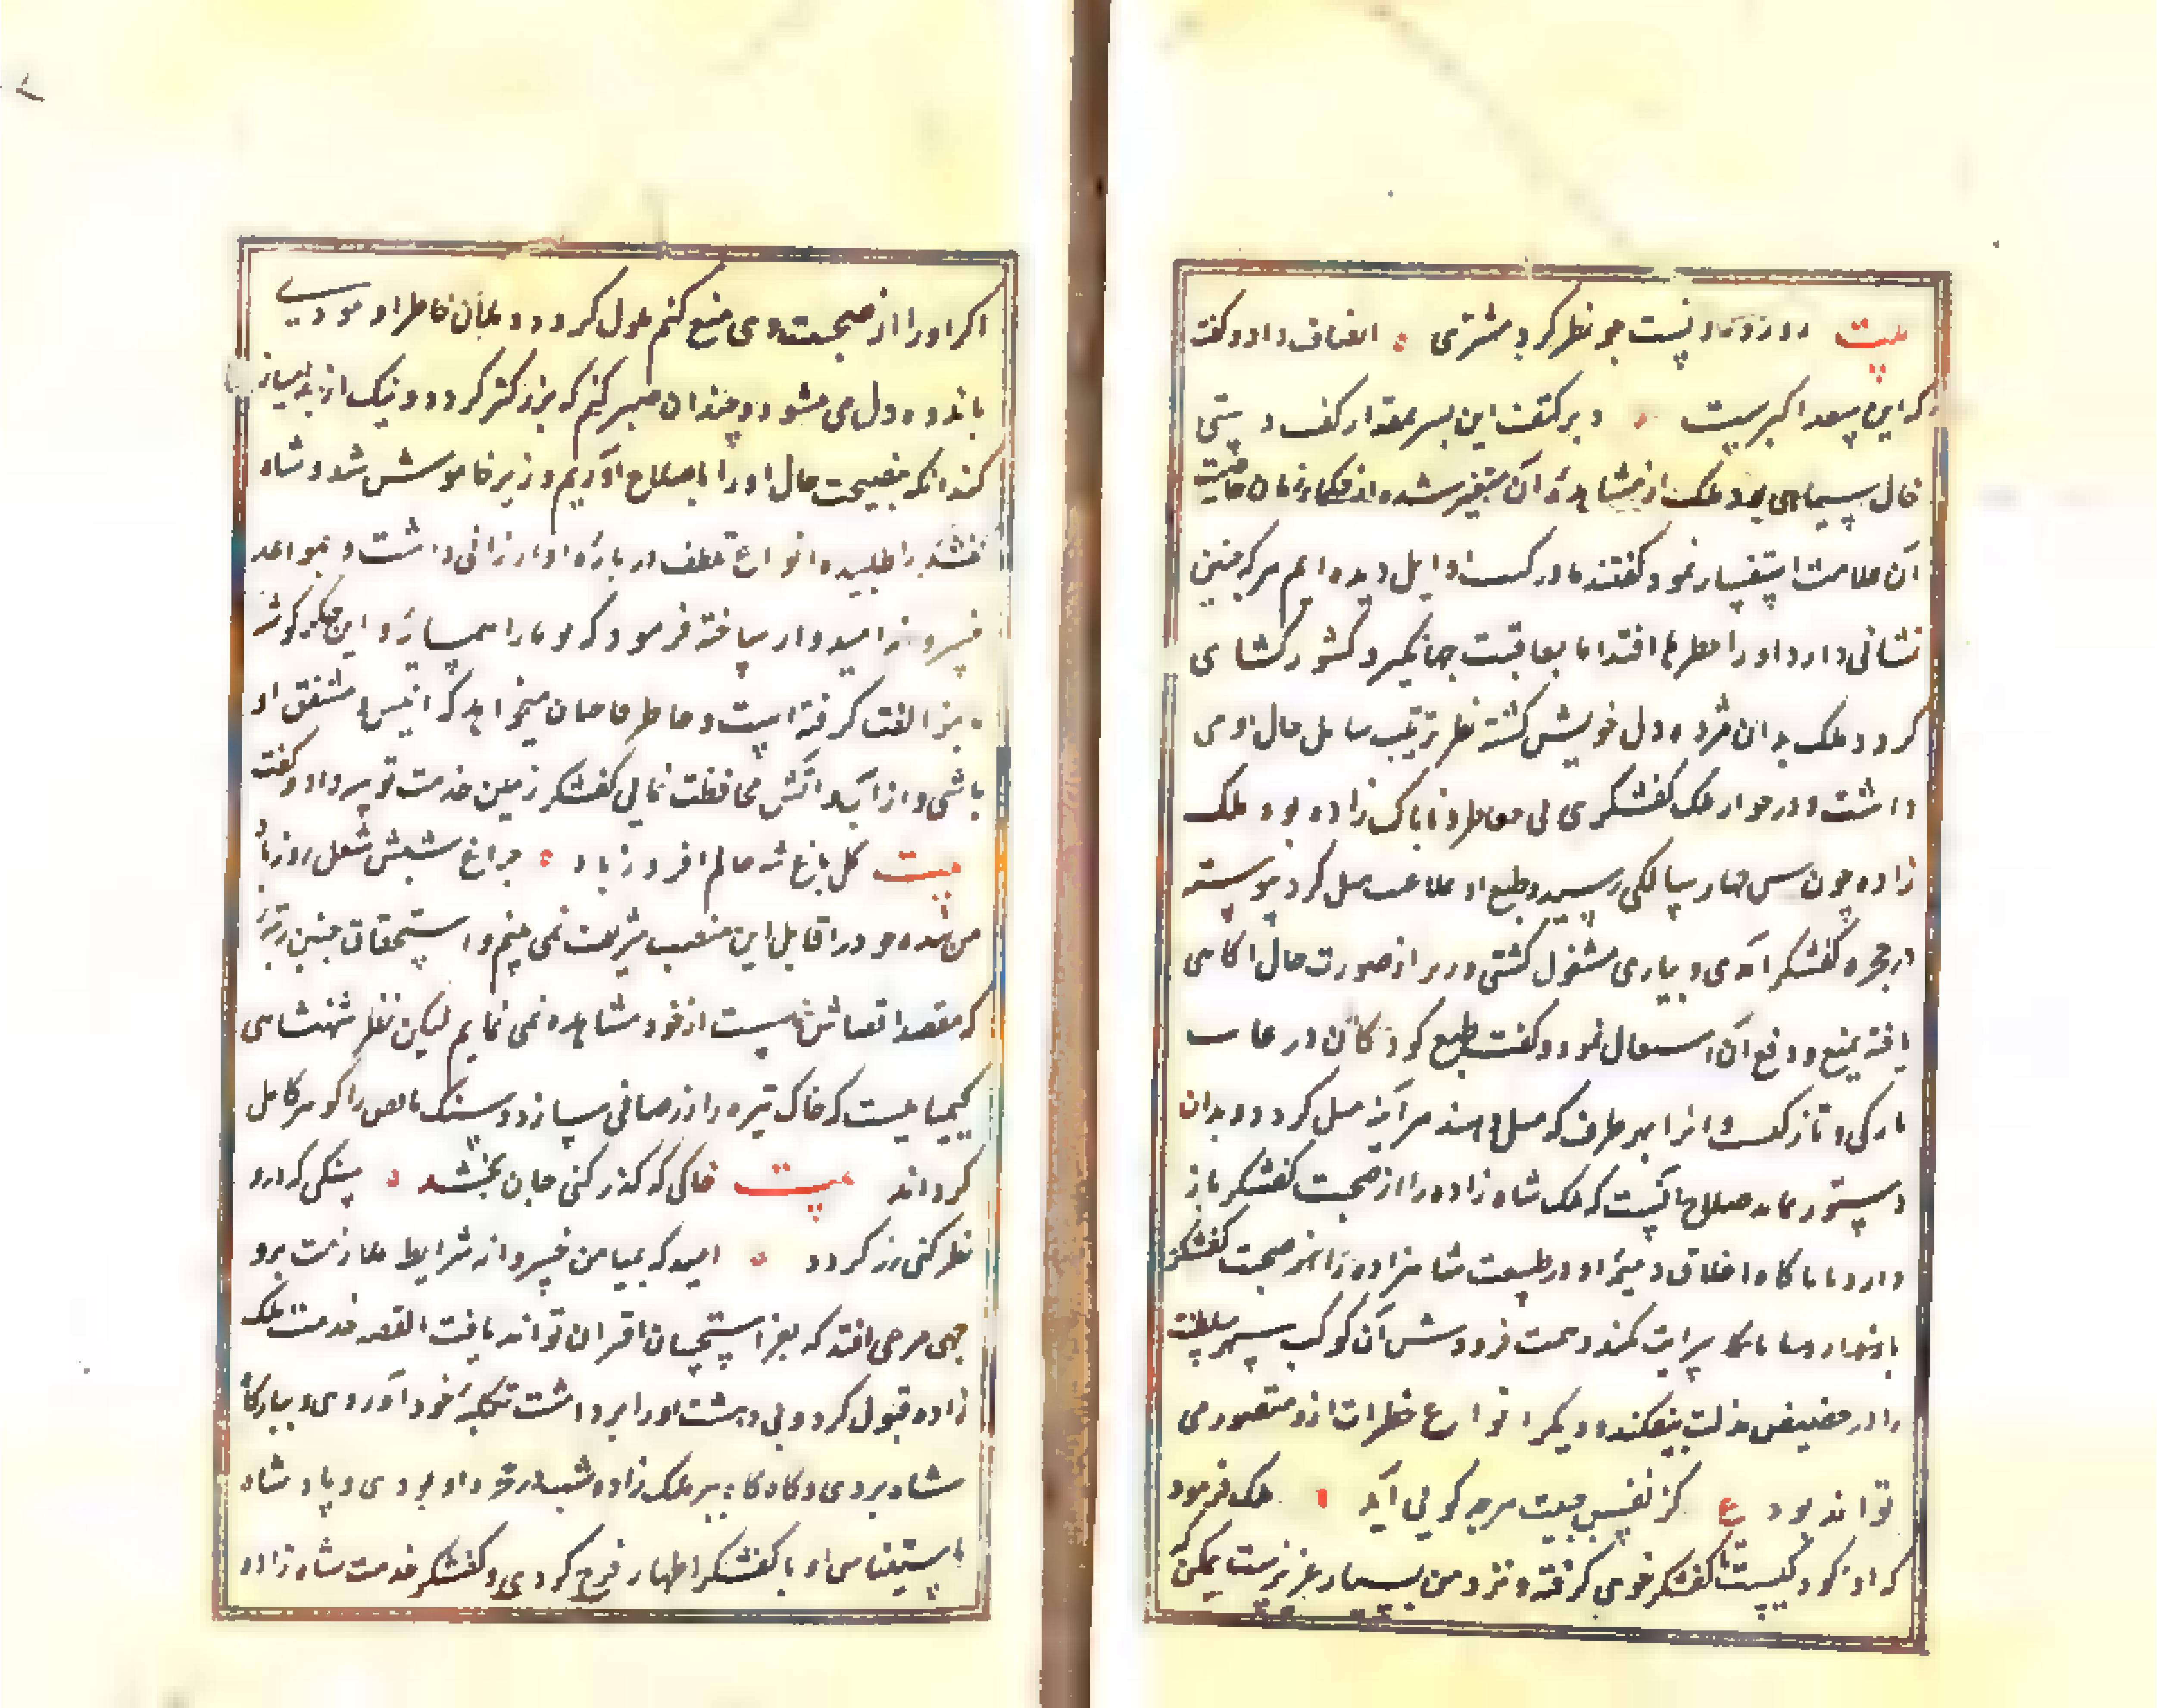 بیت در روز ولادتست چو نظر کرد مشتری انصاف داد و گفت
که این سعد اکبرست و بر کتف این پسر بمقدار کف دستی
خال سیاهی بود ملک از مشاهدهٔ آن متغیر شده از حکماء زمان خاصیت
آن علامت استفسار نمود گفتند ما در کتب اوایل دیده ایم هر که چنین
نشانی دارد او را خطرها افتد اما بعاقبت جهانگیر و کشور کشای
کردد ملک بدان مژده دل خویش گشته نظر تربیت شامل حال او می
داشت و در جوار ملک کفشگری بی و ناپاک زاده بود ملک
زاده چون بسن چهار سالگی رسید و طبع او بملاعبت میل کرد پیوسته
در حجره کفشگر آمدی و ببازی مشغول گشتی وزیر از صورت حال اکاهی
یافته بمنع و دفع آن اشتغال نمود و گفت طبع کودکان در غایت
نازکی و تازگیست و انرا بهر طرف که میل دهند هر آینه میل کردد و بدان
دستور بماند صلاح آنست که ملک شاه زاده را از صحبت کفشگر باز
دارد تا ناگاه اخلاق ذمیمهٔ او در طبیعت شاهزاده را از صحبت کفشگر
باز ندارد مبادا سرایت کند و همت فرودش آن کوکب سپهر سلطنت
را در حضیض مذلت بیفکند و دیگر انواع خطرات ازو متصور می
تواند بود ع کز نفس خبیث هرچه گویی آید ملک فرمود
که او کودکیست با کفشگر خوی گرفته و نزد من بسیار عزیزست یمکن که
اگر او را از صحبت وی منع کنم ملول کردد و ملال خاطر او موذی
باندوه دل می شود چندان صبر کنم که بزرگتر کردد و نیک از بد امتیاز
کند آنکه بنصیحت حال او را باصلاح آوریم وزیر خاموش شد و شاه
کفشگر را طلبیده انواع تلطف در بارهٔ او ارزانی داشت و بمواعد
خسروانه امیدوار ساخته فرمود که تو ما را همسایهٔ و این جگر گوشه
بتو الفت گرفته است و خاطر ما چنان میخواهد که انیس و مشفق او
باشی و از آب و آتش محافظت نمایی کفشگر زمین خدمت بوسه داد و گفت
بیت گل باغ شه عالم افروز باد چراغ شبش مشعل روز باد
من بنده خود را قابل این منصب شریف نمی بینم و استحقاق چنین رتبهٔ
که مقصد اقصاش نیست از خود مشاهده نمی نمایم لیکن نظر شهنشاهی
کیمیاییست که خاک تیره را زر صافی سازد و سنگ ناقص را گوهر کامل
گرداند بیت خاکی که گذر کنی جان بخشد سنگی که درو
نظر کنی زر گردد امید که بمیامن خسروانه شرایط ملازمت برو
جهی مرعی افتد که بعز استحسان اقران تواند یافت القصه خدمت ملک
زاده قبول کرد و بی دهشت او را برداشت بتکیهٔ خود آوردی و ببارگاه
شاه بردی و گاه گاه ببر ملک زاده شب در حجره او بودی و پادشاه
باستیناس او با کفشگر اظهار فرح کردی و کفشگر خدمت شاه زاده